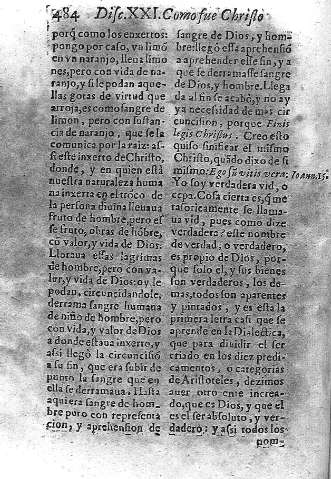 484 Disc.XXI. Como fue Christo
porq̃ como los enxertos:
pongo por caso, vn limō
en vn naranjo, lleua limo
nes, pero con vida de na-
ranjo, y si le podan aque-
lla; gotas de virtud que
arroja, es como sangre de
limon, pero con sustan-
cia de naranjo, que se la
comunica por la raiz: as-
si este inxerto de Christo,
donde, y en quien està
nuestra naturaleza huma
na inxerta en el troco de
la persona diuina lleuaua
fruto de hombre, pero esse
fruto, obras de hōbre,
cō valor, y vida de Dios:
Lloraua essas lagrimas
de hombre, pero con va-
lor, y vida de Dios: oy le
podan, circuncidandole,
derrama sangre humana
de niño de hombre, pero
con vida, y valor de Dios
a donde estaua inxerto, y
assi llegò la circuncisiō
a su fin, que era subir de
punto la sangre que en
ella se derramaua. Hasta
aqui era sangre de hom-
bre puro con representa
cion, y aprehension de
sangre de Dios, y hom-
bre: llegó essa aprehensiō
a aprehender esse fin, y a
que se derramasse sangre
de Dios, y hombre. Llega
da al fin se acabò, y no ay
ya necesidad de mas cir
cuncision, porque Finis
legis Christus. Creo esto
quiso sinificar el mismo
Christo, quādo dixo de si
mismo: Ego sū vitis vera: Ioann.15.
Yo soy verdadera vid, o
cepa. Cosa cierta es, que
metaforicamente se llama-
ua vid, pues como dize
verdadera? este nombre
de verdad, o verdadero,
es propio de Dios, por-
que solo el, y sus bienes
son verdaderos, los de-
mas, todos son aparentes
y pintados, y es esta la
primera letra casi que se
aprende en la Dialectica,
que para diuidir el ser
criado en los diez predi-
camentos, o categorias
de Aristoteles, dezimos
auer otro ente increa-
do, que es Dios, y que el
es el ser absoluto, y ver-
dadero: y assi todos los
nom-